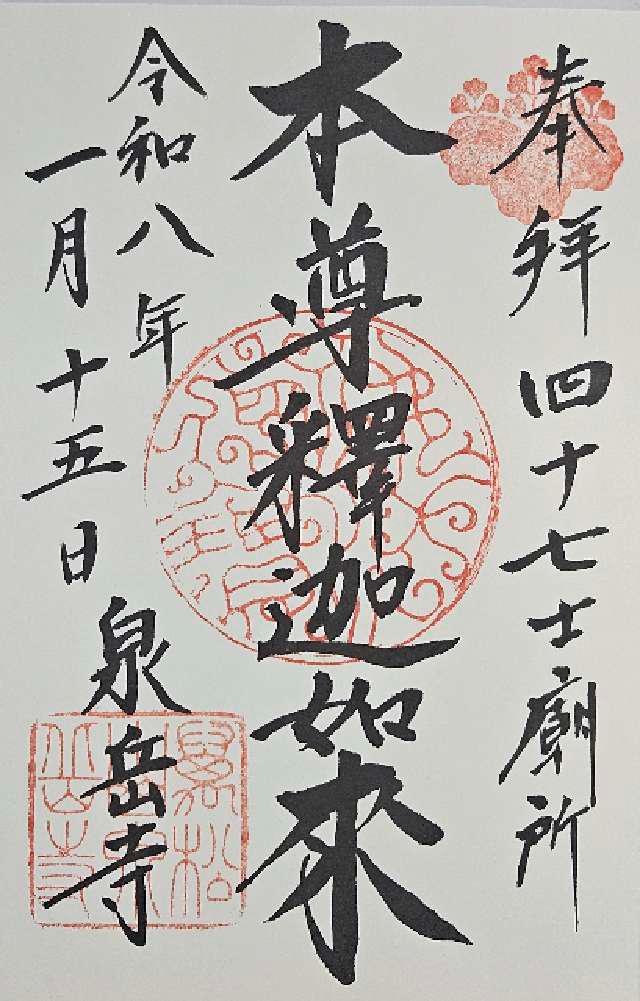 奉拜四十七士廟所
本尊釋迦如來
令和八年
一月十五日
泉岳寺
萬松山泉岳寺